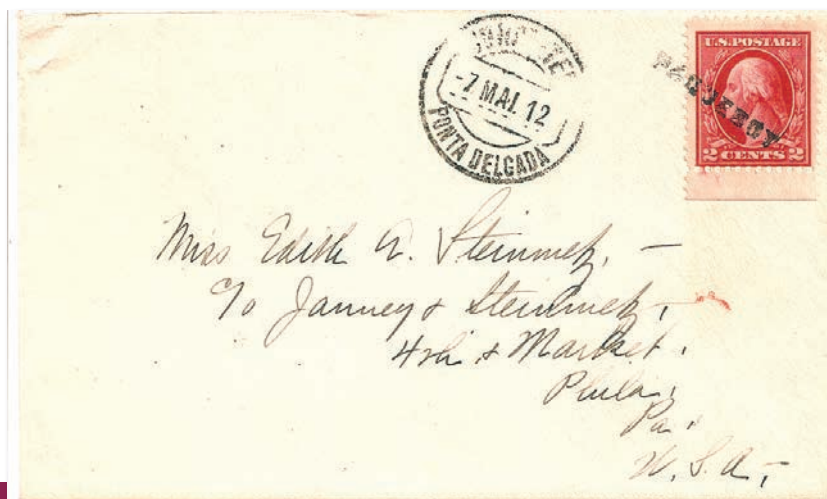 -7 MAI. 12
PONTA DELGADA
U.S. POSTAGE
PAQUEBOT
2 CENTS 2
Miss Edith A. Steinmetz, —
c/o Janney & Steinmetz,
4th & Market.
Phila,
Pa.
U.S.A.,